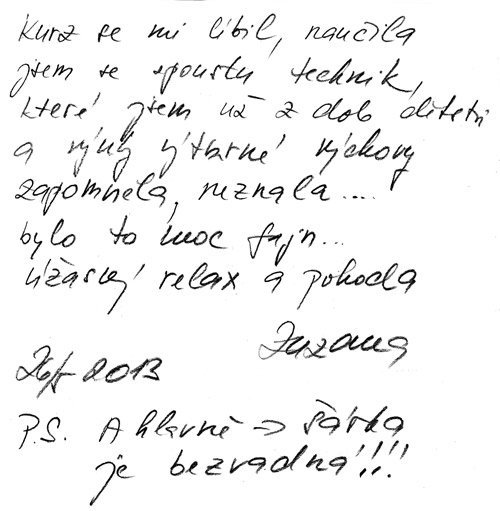 Kurz se mi líbil, naučila
jsem se spoustu technik,
které jsem už z dob dětství
a výtvarné výchovy
zapomněla, neznala....
bylo to moc fajn...
úžasný relax a pohoda
Zuzana
2013
P.S. A hlavně → Šárka
je bezvadná!!!